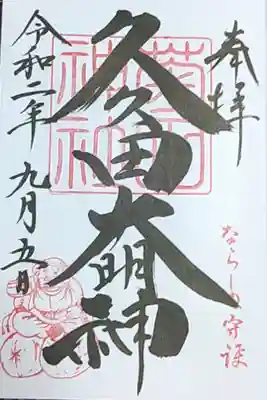 奉拝
ならしの守護
菊田神社
久々田大明神
令和二年 九月五日